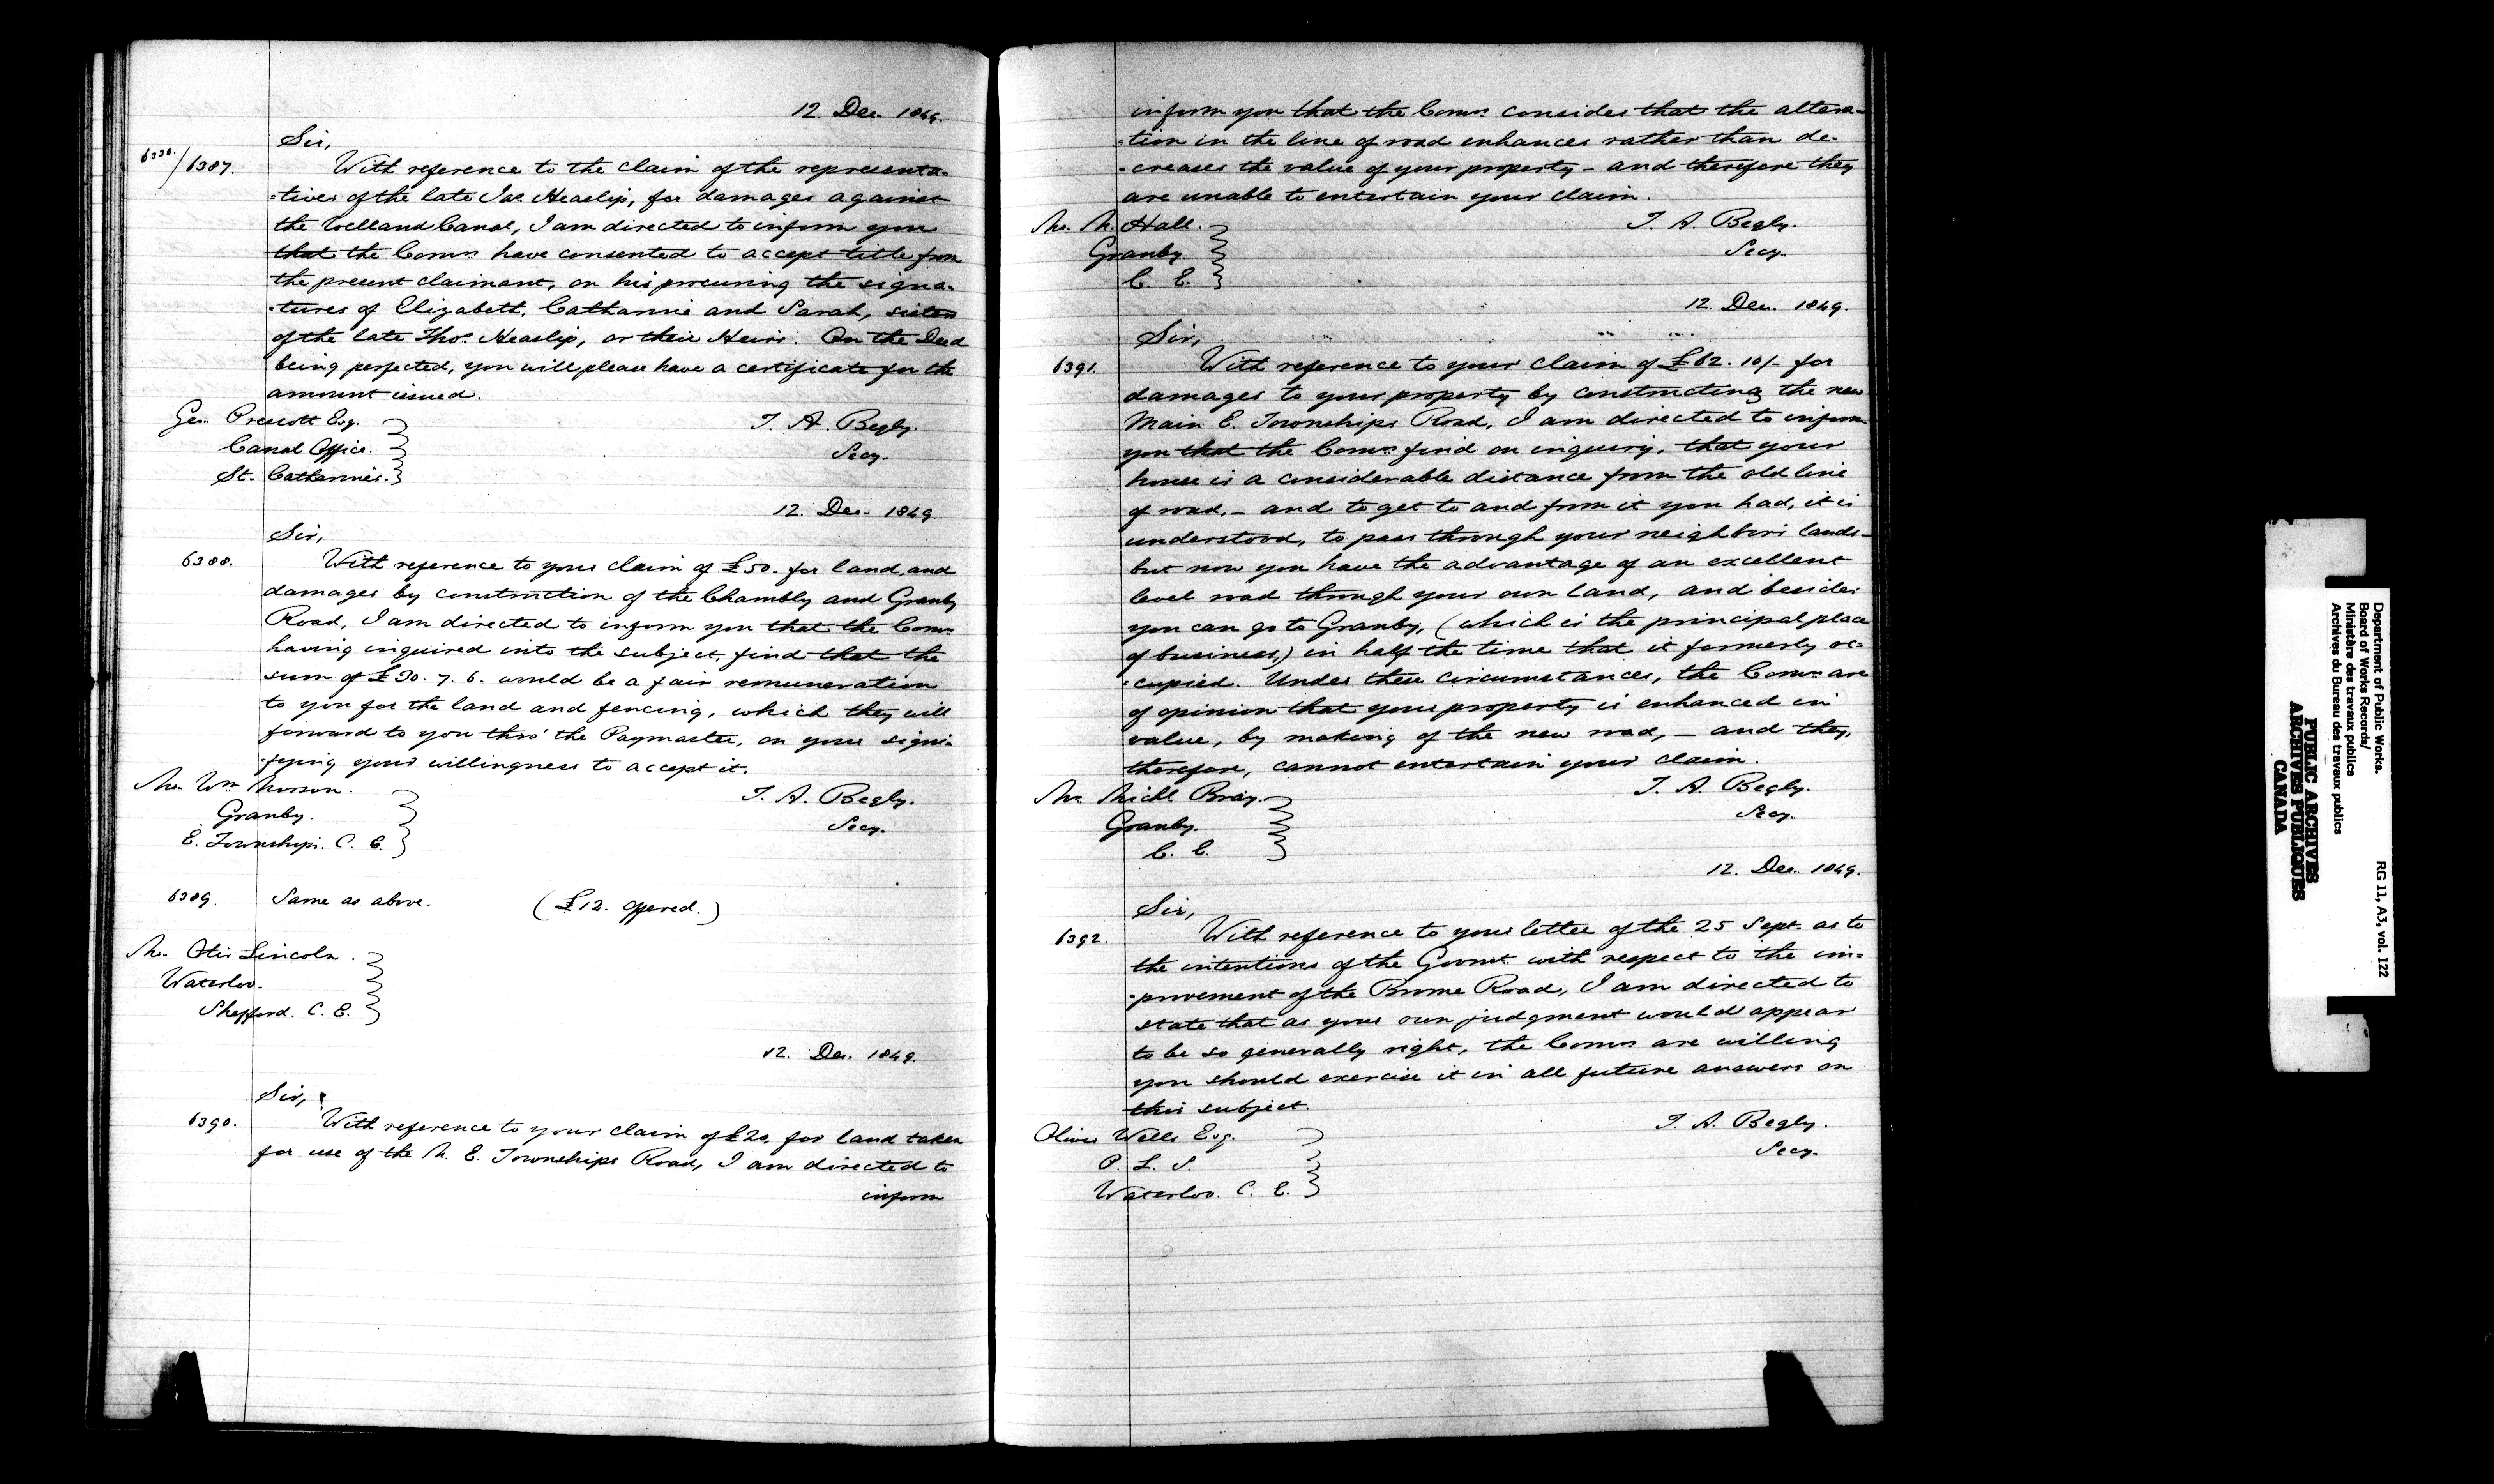 12. Dec. 1849.
Sir,
6336./6387. With reference to the claim of the representa-
-tives of the late Jas. Heaslip, for damages against
the Welland Canal, I am directed to inform you
that the Comrs. have consented to accept title from
the present claimant, on his procuring the signa-
-tures of Elizabeth, Catharine and Sarah, sisters
of the late Thos. Heaslip, or their Heirs. On the Deed
being perfected, you will please have a certificate for the
amount issued.
T. A. Begly.
Secy.
Geo. Prescott Esq.
Canal Office.
St. Catharines.
12. Dec. 1849.
Sir,
6388. With reference to your claim of £50. for land, and
damages by construction of the Chambly and Granby
Road, I am directed to inform you that the Comrs.
having inquired into the subject, find that the
sum of £30. 7. 6. would be a fair remuneration
to you for the land and fencing, which they will
forward to you thro' the Paymaster, on your signi-
-fying your willingness to accept it.
T. A. Begly.
Secy.
Mr. Wm.
Granby.
E. Townships. C. E.
6389. Same as above. (£12. offered.)
Mr. Otis Lincoln.
Waterloo.
Shefford. C. E.
12. Dec. 1849.
Sir,
6390. With reference to your claim of £20, for land taken
for use of the M. E. Townships Road, I am directed to
inform
inform you that the Comrs. consider that the altera-
-tion in the line of road enhances rather than de-
-creases the value of your property - and therefore they
are unable to entertain your claim.
T. A. Begly.
Secy.
Mr. M. Hall.
Granby.
C. E.
12. Dec. 1849.
Sir,
6391. With reference to your claim of £62. 10/- for
damages to your property by constructing the new
Main E. Townships Road, I am directed to inform
you that the Comrs. find on inquiry, that your
house is a considerable distance from the old line
of road, - and to get to and from it you had, it is
understood, to pass through your neighbors lands -
but now you have the advantage of an excellent
level road through your own land, and besides
you can go to Granby, (which is the principal place
of business,) in half the time that it formerly oc-
-cupied. Under these circumstances, the Comrs. are
of opinion that your property is enhanced in
value, by making of the new road, - and they,
therefore, cannot entertain your claim.
T. A. Begly.
Secy.
Mr. Michl. Bray.
Granby.
C. E.
12. Dec. 1849.
Sir,
6392. With reference to your letter of the 25 Sept. as to
the intentions of the Govmt. with respect to the im-
-provement of the Brome Road, I am directed to
state that as your own judgment would appear
to be so generally right, the Comrs. are willing
you should exercise it in all future answers on
this subject.
T. A. Begly.
Secy.
Oliver Wells Esq.
P. L. S.
Waterloo. C. E.
Department of Public Works.
Board of Works Records/
Ministère des travaux publics
Archives du Bureau des travaux publics
RG 11, A3, vol. 122
PUBLIC ARCHIVES
ARCHIVES PUBLIQUES
CANADA